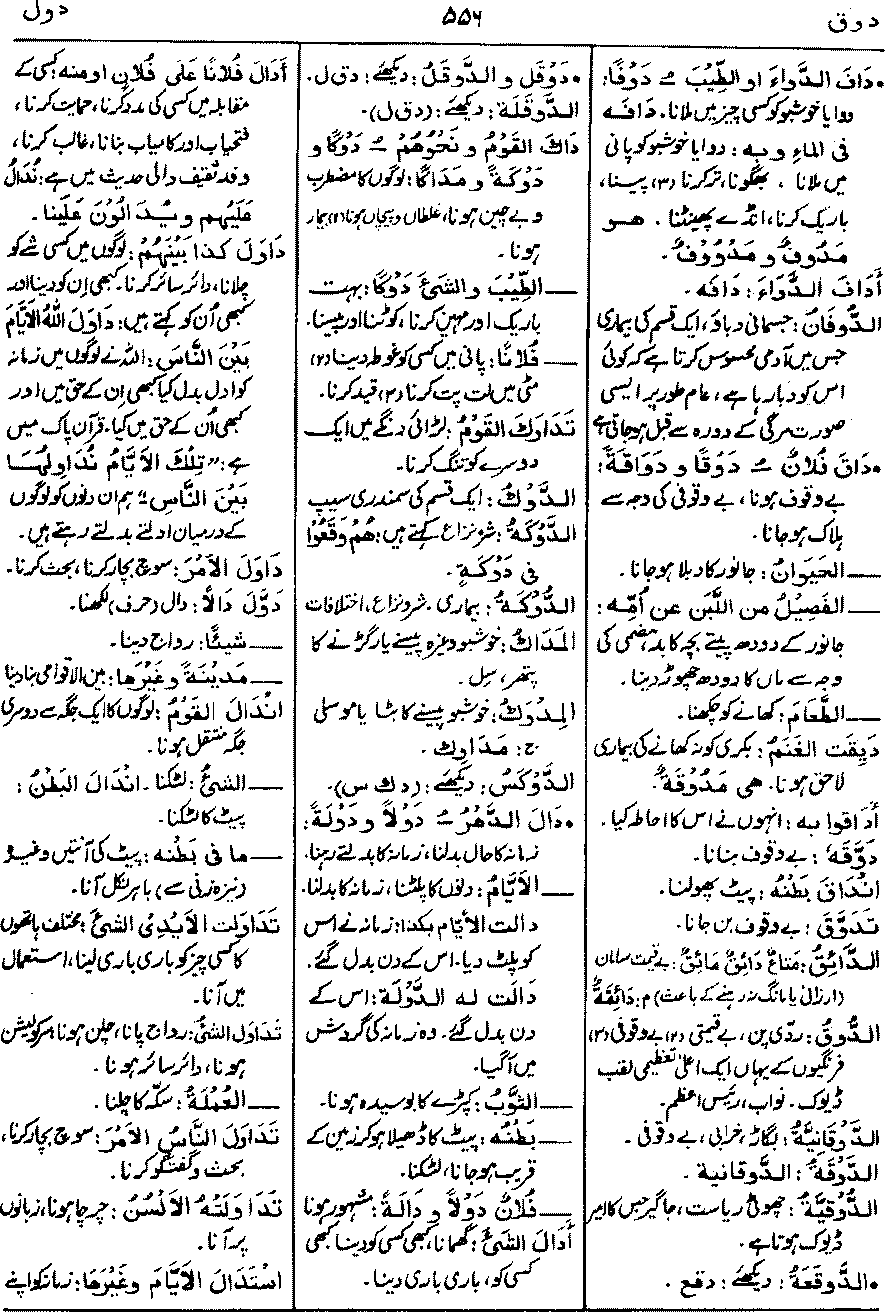 دوق
۵۵۶
دول
• دَافَ الدَّوَاءَ او الطِّيْبَ ـُ دَوْفًا:
دوا یا خوشبو کو کسی چیز میں ملانا۔ دَافَه
فی الماءِ و بِه : دوا یا خوشبو کو پانی
میں ملانا، بھگونا، تر کرنا (۳) پیسنا،
باریک کرنا، انڈے پھینٹنا۔ هو
مَدُوفٌ و مَدْوُوْفٌ۔
أَدَافَ الدَّوَاءَ: دَافَه۔
الدُّوْفَانُ: جسمانی دباؤ، ایک قسم کی بیماری
جس میں آدمی محسوس کرتا ہے کہ کوئی
اس کو دبا رہا ہے، عام طور پر ایسی
صورت مرگی کے دورہ سے قبل ہو جاتی ہے
• دَاقَ فُلَانٌ ـُ دَوْقًا و دَوَاقَةً:
بے وقوف ہونا، بے وقوفی کی وجہ سے
ہلاک ہو جانا۔
ــــ الحَيَوَانُ: جانور کا دبلا ہو جانا۔
ــــ الفَصِيْلُ من اللَّبَن عن أُمِّه :
جانور کے دودھ پیتے بچہ کا بدہضمی کی
وجہ سے ماں کا دودھ چھوڑ دینا۔
ــــ الطَّعَامَ: کھانے کو چکھنا۔
دِيْقَتِ الغَنَمُ: بکری کو نہ کھانے کی بیماری
لاحق ہونا۔ هی مَدُوْقَةٌ۔
أَدَاقوا به : انہوں نے اس کا احاطہ کیا۔
دَوَّقَه : بے وقوف بنانا۔
انْدَاقَ بَطْنُه : پیٹ پھولنا۔
تَدَوَّقَ : بے وقوف بن جانا۔
الدَّائِقُ: مَتَاعٌ دَائِقٌ مَائِقٌ: بے قیمت سامان
(ارزانی یا مانگ نہ رہنے کے باعث) م: دَائِقَةٌ
الدُّوقُ: ردّی پن، بے قیمتی (۲) بے وقوفی (۳)
فرنگیوں کے یہاں ایک اعلیٰ تعظیمی لقب
ڈیوک۔ نواب، رئیس اعظم۔
الدَّوْقَانِيَّةُ : بگاڑ، خرابی، بے وقوفی۔
الدَّوْقَةُ : الدَّوقانية ۔
الدُّوْقِيَّةُ: چھوٹی ریاست، جاگیر جس کا امیر
ڈیوک ہوتا ہے۔
• الدَّوْقَعَةُ: دیکھئے : دقع ۔
• دَوْقَل و الدَّوقَلُ : دیکھئے : دق ل۔
الدَّوْقَلَة : دیکھئے : (دق ل)۔
دَاكَ القَوْمُ و نَحْوُهُمْ ـُ دَوْكًا و
دَوْكَةً و مَدَاكًا: لوگوں کا مضطرب
و بے چین ہونا، غلطاں و پیچاں ہونا (۲) بیمار
ہونا۔
ــــ الطِّيْبَ و الشَّيْءَ دَوْكًا: بہت
باریک اور مہین کرنا، کوٹنا اور پیسنا۔
ــــ فُلَانًا: پانی میں کسی کو غوطہ دینا (۲)
مٹی میں لت پت کرنا (۳) قید کرنا۔
تَدَاوَكَ القَوْمُ : لڑائی دنگے میں ایک
دوسرے کو تنگ کرنا۔
الدَّوْكُ : ایک قسم کی سمندری سیپ
الدَّوْكَةُ : شر و نزاع کہتے ہیں: هُمْ وَقَعُوْا
فی دَوْكَةٍ۔
الدُّوكَةُ : بیماری۔ شر و نزاع، اختلافات
المَدَاكُ : خوشبو وغیرہ پیسنے یا رگڑنے کا
پتھر، سل۔
المِدْوَكُ : خوشبو پیسنے کا بٹا یا موسلی
ج : مَدَاوِك ۔
الدَّوْكَسُ : دیکھئے : (د ك س)۔
• دَالَ الدَّهْرُ ـُ دَوْلًا و دَوْلَةً :
زمانہ کا حال بدلنا، زمانہ کا بدلتے رہنا۔
ــــ الأَيَّامُ : دنوں کا پلٹنا، زمانہ کا بدلنا۔
دالت الأيّام بكذا: زمانہ نے اس
کو پلٹ دیا۔ اس کے دن بدل گئے۔
دَالَت له الدَّوْلَة : اس کے
دن بدل گئے۔ وہ زمانہ کی گردش
میں آگیا۔
ــــ الثَّوْبُ : کپڑے کا بوسیدہ ہونا۔
ــــ بَطْنُه : پیٹ کا ڈھیلا ہو کر زمین کے
قریب ہو جانا، لٹکنا۔
ــــ فُلَانٌ دَوْلًا و دَالَةً : مشہور ہونا
أَدَالَ الشَّيْءَ : گھمانا، کبھی کسی کو دینا کبھی
کسی کو، باری باری دینا۔
أَدَالَ فُلَانًا عَلَى فُلَانٍ او منه: کسی کے
مقابلہ میں کسی کی مدد کرنا، حمایت کرنا،
فتحیاب اور کامیاب بنانا، غالب کرنا،
وفد ثقیف والی حدیث میں ہے: نُدَالُ
عَلَيْهِم و يُدَالُوْنَ عَلَيْنَا۔
دَاوَلَ كذا بَيْنَهُمْ : لوگوں میں کسی شے کو
چلانا، دائر سائر کرنا۔ کبھی اِن کو دینا اور
کبھی اُن کو کہتے ہیں: دَاوَلَ اللهُ الأَيَّامَ
بَيْنَ النَّاسِ: اللہ نے لوگوں میں زمانہ
کو ادل بدل کیا کبھی اِن کے حق میں اور
کبھی اُن کے حق میں کیا۔ قرآن پاک میں
ہے: "تِلْكَ الأَيَّامُ نُدَاوِلُهَا
بَيْنَ النَّاسِ" ہم ان دنوں کو لوگوں
کے درمیان ادلتے بدلتے رہتے ہیں۔
دَاوَلَ الأَمْرَ: سوچ بچار کرنا، بحث کرنا۔
دَوَّلَ دَالًا: دال (حرف) لکھنا۔
ــــ شَيْئًا : رواج دینا۔
ــــ مَدِيْنَةً و غَيْرَهَا: بین الاقوامی بنا دینا
انْدَالَ القَوْمُ: لوگوں کا ایک جگہ سے دوسری
جگہ منتقل ہونا۔
ــــ الشَّيْءُ : لٹکنا۔ انْدَالَ البَطْنُ :
پیٹ کا لٹکنا۔
ــــ ما فی بَطْنه : پیٹ کی آنتیں وغیرہ
(نیزہ زنی سے) باہر نکل آنا۔
تَدَاوَلَت الأَيْدِى الشَّيْءَ : مختلف ہاتھوں
کا کسی چیز کو باری باری لینا، استعمال
میں آنا۔
تَدَاوَلَ الشَّيْءُ: رواج پانا، چلن ہونا سرکولیشن
ہونا، دائر سائر ہونا۔
ــــ العُمْلَةُ : سکّہ کا چلنا۔
تَدَاوَلَ النَّاسُ الأَمْرَ: سوچ بچار کرنا،
بحث و گفتگو کرنا۔
تَدَاوَلَتْهُ الأَلْسُنُ : چرچا ہونا، زبانوں
پر آنا۔
اسْتَدَالَ الأَيَّامَ و غَيْرَهَا: زمانہ کو اپنے